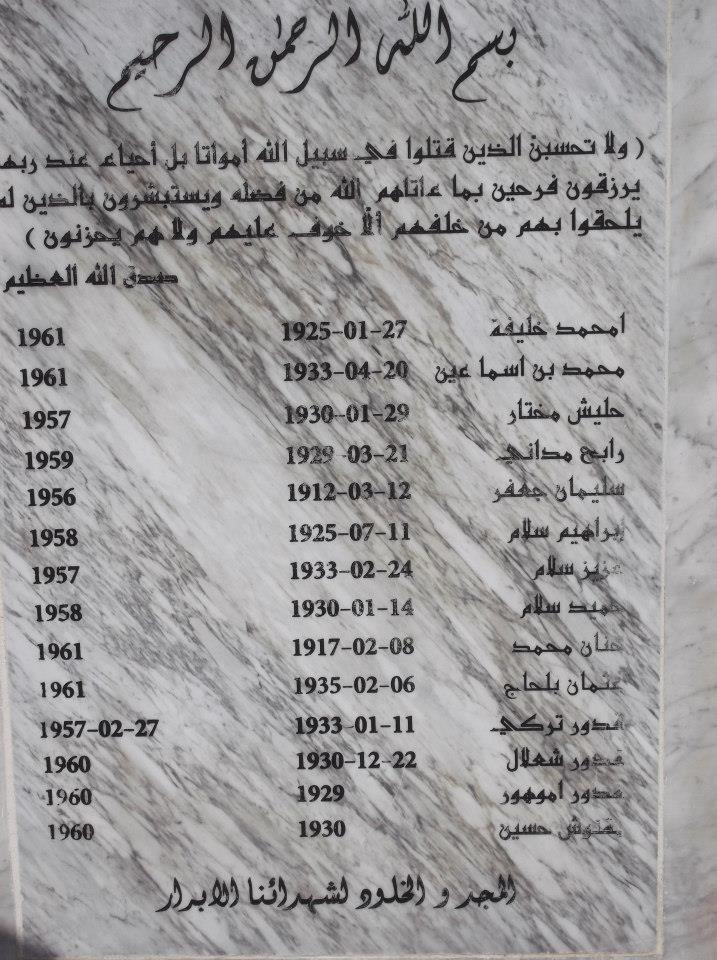 بسم الله الرحمن الرحيم
( ولا تحسبن الذين قتلوا في سبيل الله أمواتا بل أحياء عند ربهم
يرزقون فرحين بما ءاتاهم الله من فضله ويستبشرون بالذين لم
يلحقوا بهم من خلفهم ألا خوف عليهم ولا هم يحزنون )
صدق الله العظيم
امحمد خليفة 1925-01-27 1961
محمد بن اسما عين 1933-04-20 1961
حليش مختار 1930-01-29 1957
رابح مداني 1929-03-21 1959
سليمان جعفر 1912-03-12 1956
إبراهيم سلام 1925-07-11 1958
عزيز سلام 1933-02-24 1957
حميد سلام 1930-01-14 1958
عنان محمد 1917-02-08 1961
عثمان بلحاج 1935-02-06 1961
قدور تركي 1933-01-11 1957-02-27
قدور شعلال 1930-12-22 1960
قدور اموهور 1929 1960
حسين 1930 1960
المجد و الخلود لشهدائنا الابرار